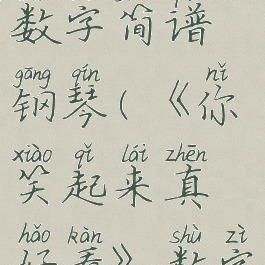 数字简谱
gāng qín nǐ
钢琴(《你
xiào qǐ lái zhēn
笑起来真
hǎo kàn shù zì
好看》数字